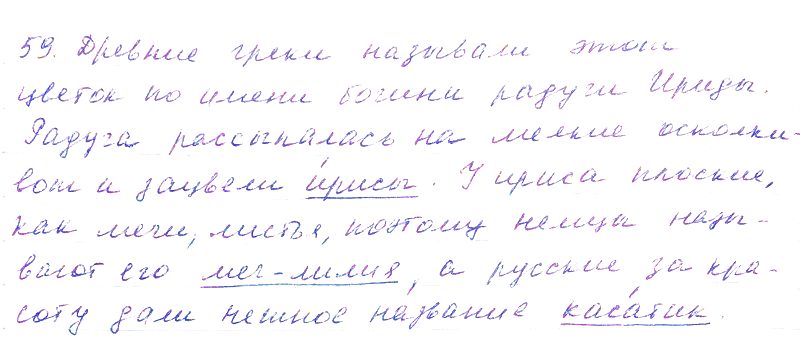 59. Древние греки называли этот
цветок по имени богини радуги Ириды.
Радуга рассыпалась на мелкие осколки-
вот и зацвели и́рисы. У ириса плоские,
как мечи, листья, поэтому немцы назы-
вают его меч-лилия, а русские за кра-
соту дали нежное название каса́тик.